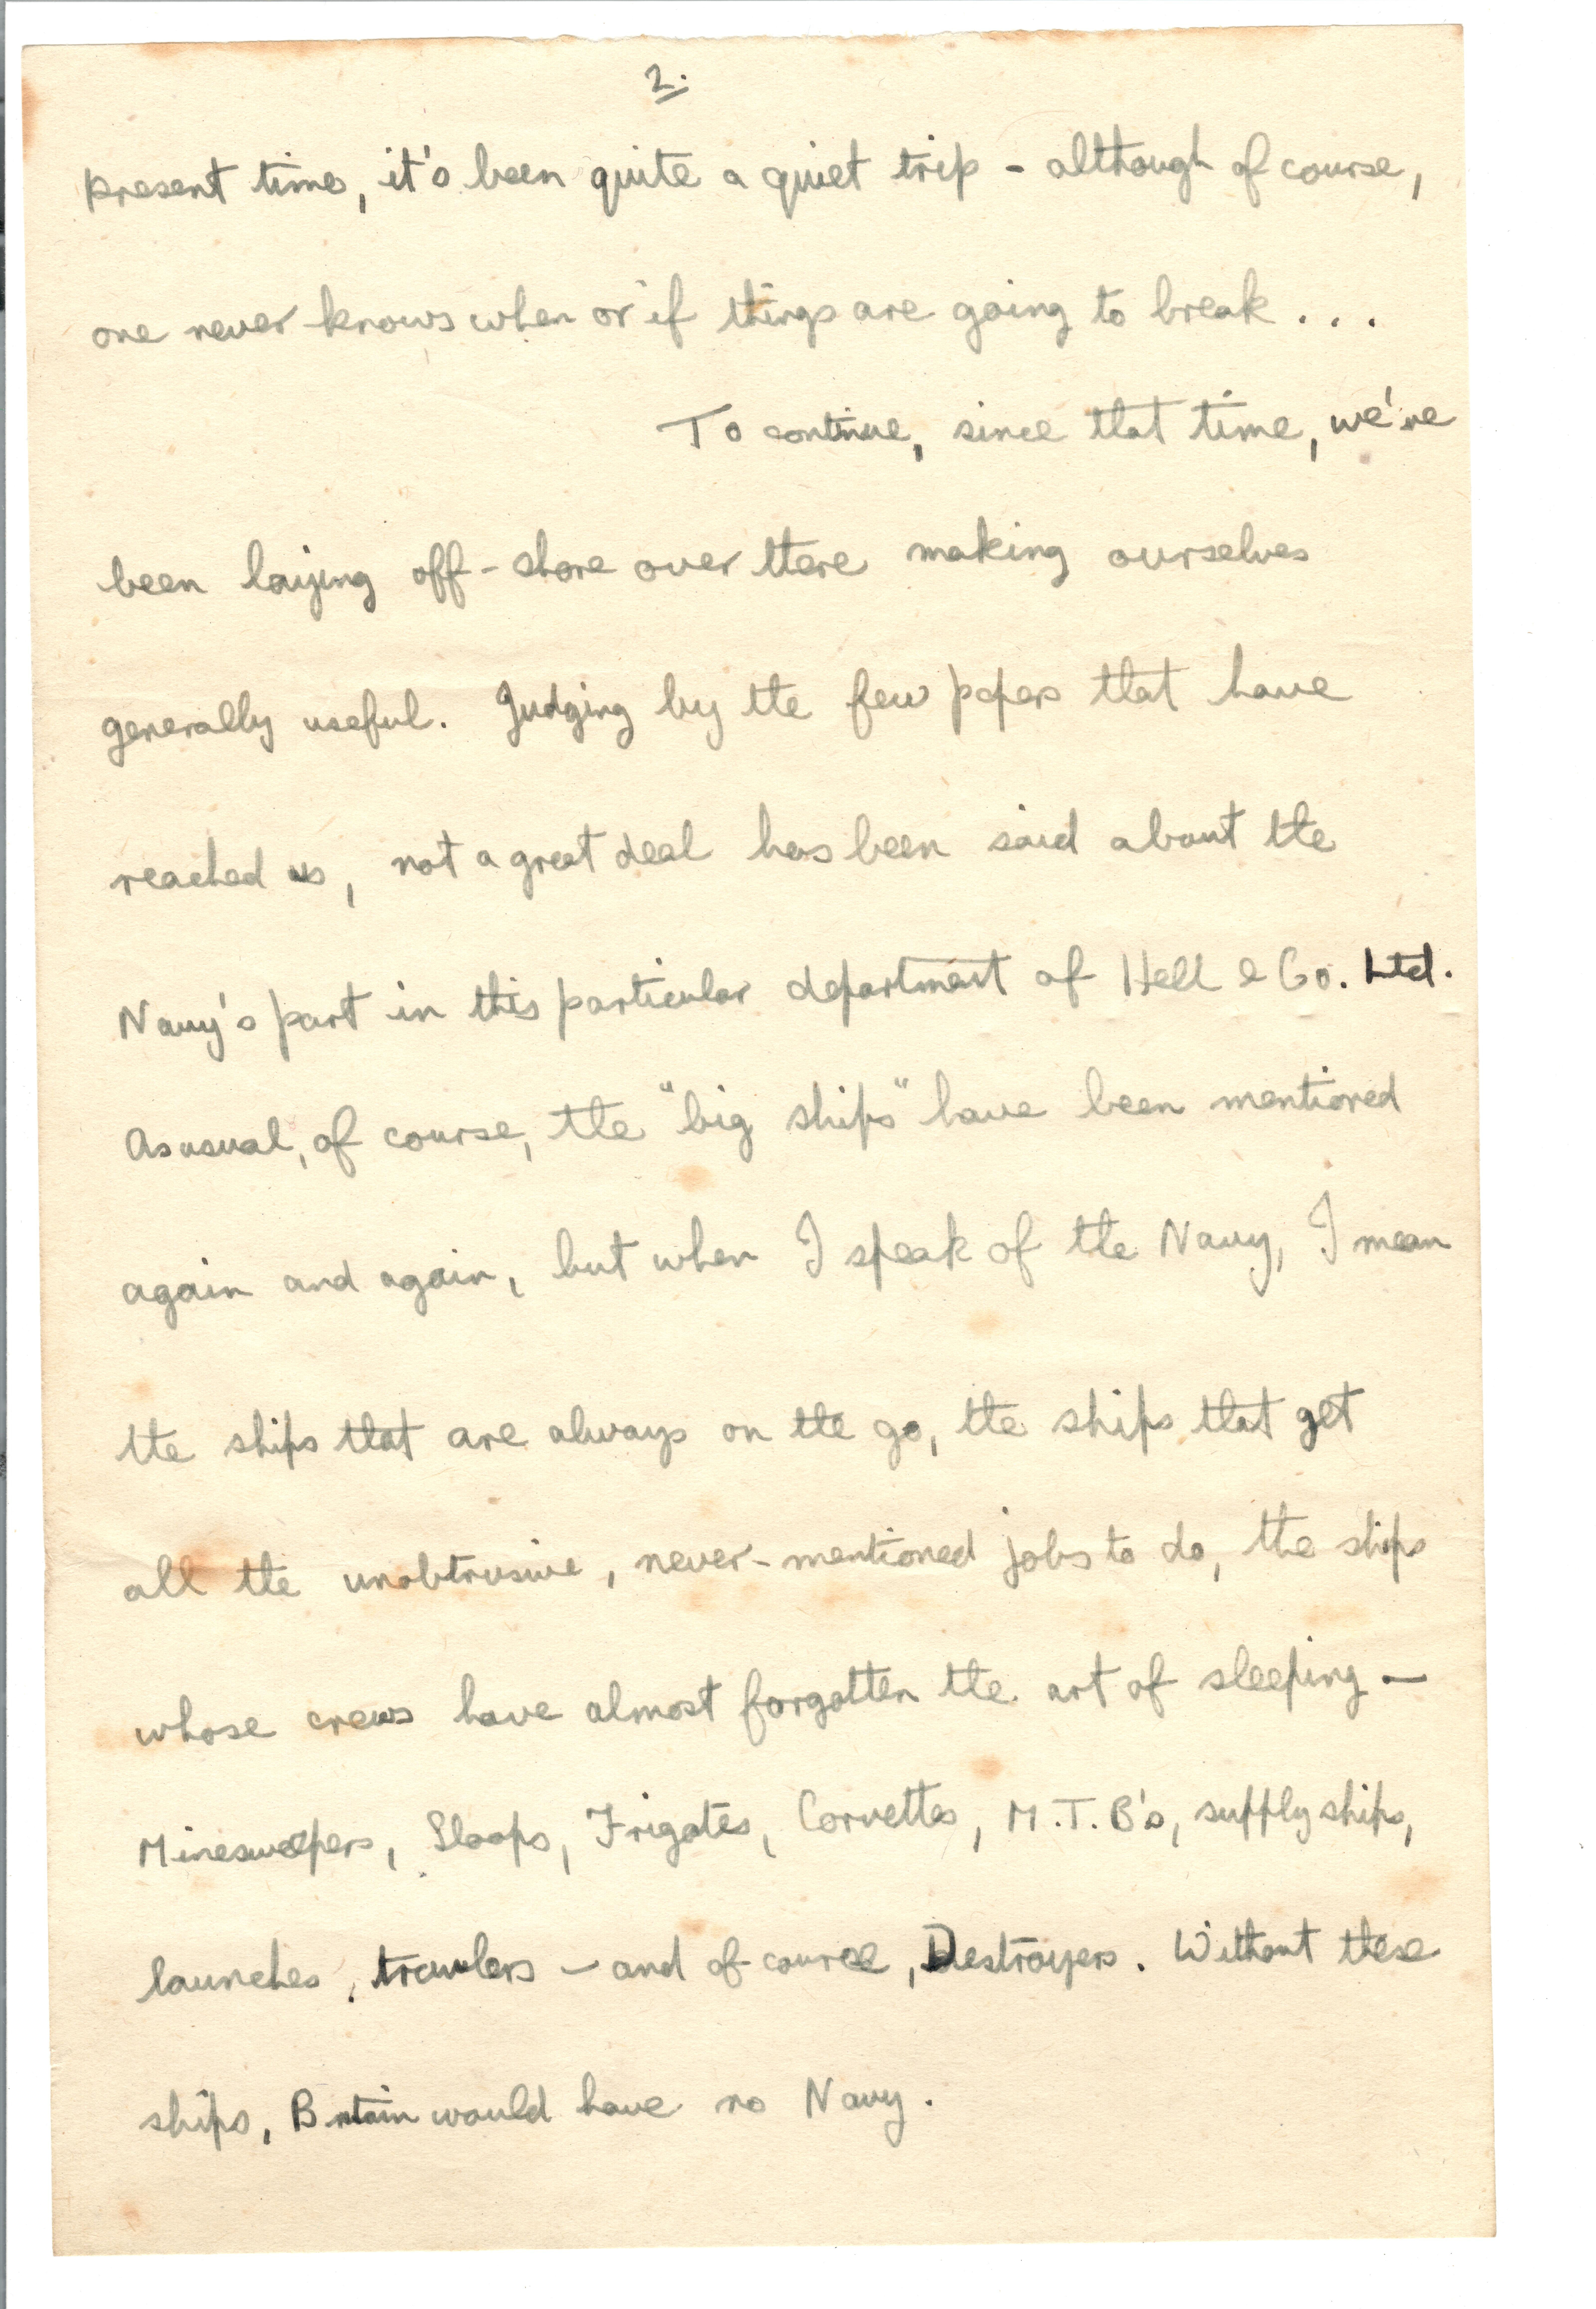 2.
present time, it's been quite a quiet trip - although of course,
one never knows when or if things are going to break . . .
To continue, since that time, we've
been laying off-shore over there making ourselves
generally useful. Judging by the few papers that have
reached us, not a great deal has been said about the
Navy's part in this particular department of Hell & Co. Ltd.
As usual, of course, the "big ships" have been mentioned
again and again, but when I speak of the Navy, I mean
the ships that are always on the go, the ships that get
all the unobtrusive, never-mentioned jobs to do, the ships
whose crews have almost forgotten the art of sleeping —
Minesweepers, Sloops, Frigates, Corvettes, M.T.B's, supply ships,
launches, trawlers — and of course, Destroyers. Without these
ships, Britain would have no Navy.